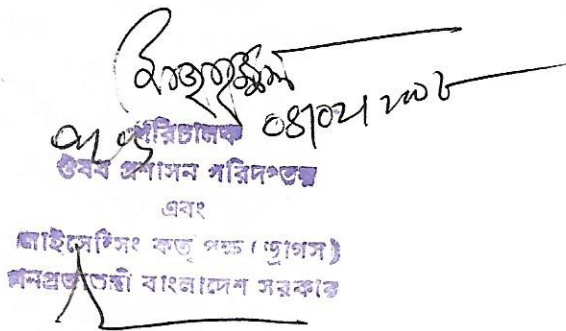 পরিচালক
ঔষধ প্রশাসন পরিদপ্তর
এবং
লাইসেন্সিং কর্তৃপক্ষ (ড্রাগস)
গনপ্রজাতন্ত্রী বাংলাদেশ সরকার